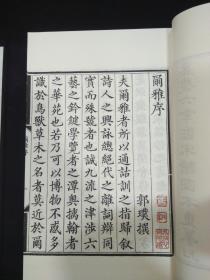 爾雅序
郭璞撰
夫爾雅者所以通詁訓之指歸敘
詩人之興詠揔絶代之離詞辯同
實而殊號者也誠九流之津涉六
藝之鈐鍵學覽者之潭奧摛翰者
之華苑也若乃可以博物不惑多
識於鳥獸草木之名者莫近於爾